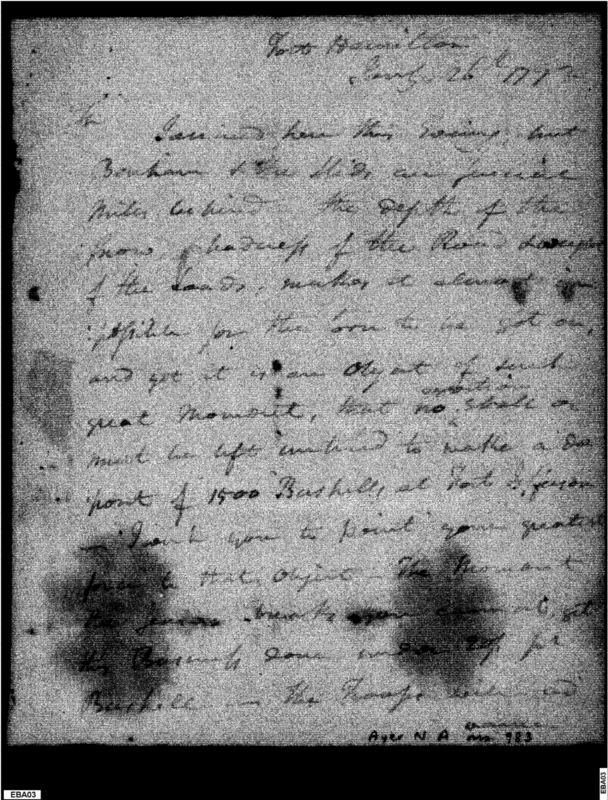 Fort Hamilton
Jany 26th 179
Sir
I arrived here this Evening, but
Bonham & the Slids are
Miles behind the depth of the
snow, badness of the Road &
of the loads, makes it almost im
possible for the Corn to be got on,
and yet it is an Object of such
great Moment, that no exertion shall or
must be left untried to make a de
posit of 1500 Bushells at Fort Jefferson
I wish you to point your greatest
force to that Object — The Moment
the season breaks you cannot get
this Business done under 20/ pr
Bushell — the Troops
Ayer N A ms 983
EBA03
EBA03